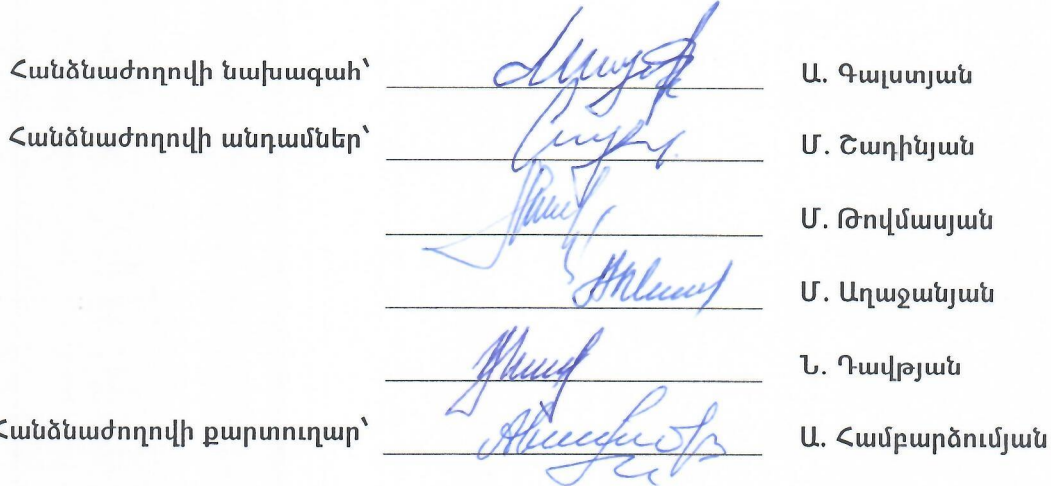 Հանձնաժողովի նախագահ՝ Ա. Գալստյան
Հանձնաժողովի անդամներ՝ Մ. Շադինյան
Մ. Թովմասյան
Մ. Աղաջանյան
Ն. Դավթյան
Հանձնաժողովի քարտուղար՝ Ա. Համբարձումյան